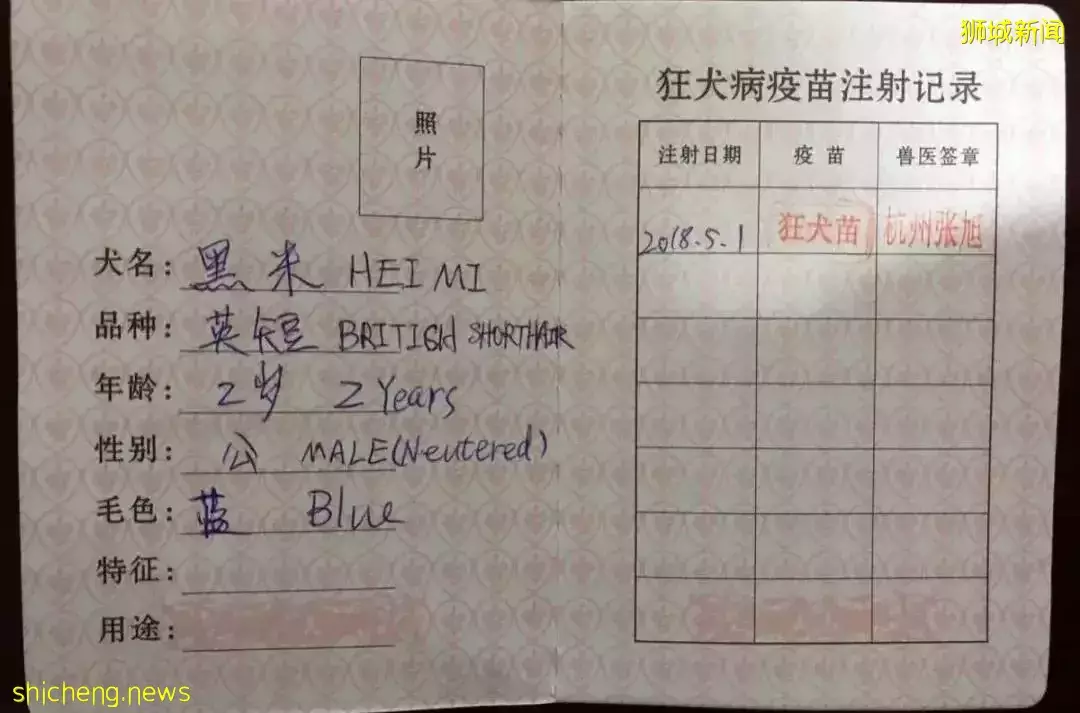 狮城新闻
照
片
犬名：黑米 HEI MI
品种：英短 BRITISH SHORTHAIR
年龄：2岁 2 Years
性别：公 MALE(Neutered)
毛色：蓝 Blue
特征：
用途：
狂犬病疫苗注射记录
注射日期 疫苗 兽医签章
2018.5.1 狂犬苗 杭州张旭
shicheng.news